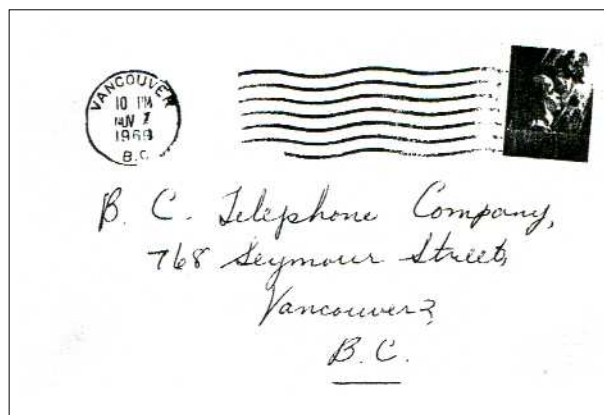 VANCOUVER
10 PM
NOV 7
1969
B.C.
B. C. Telephone Company,
768 Seymour Street,
Vancouver 2,
B.C.